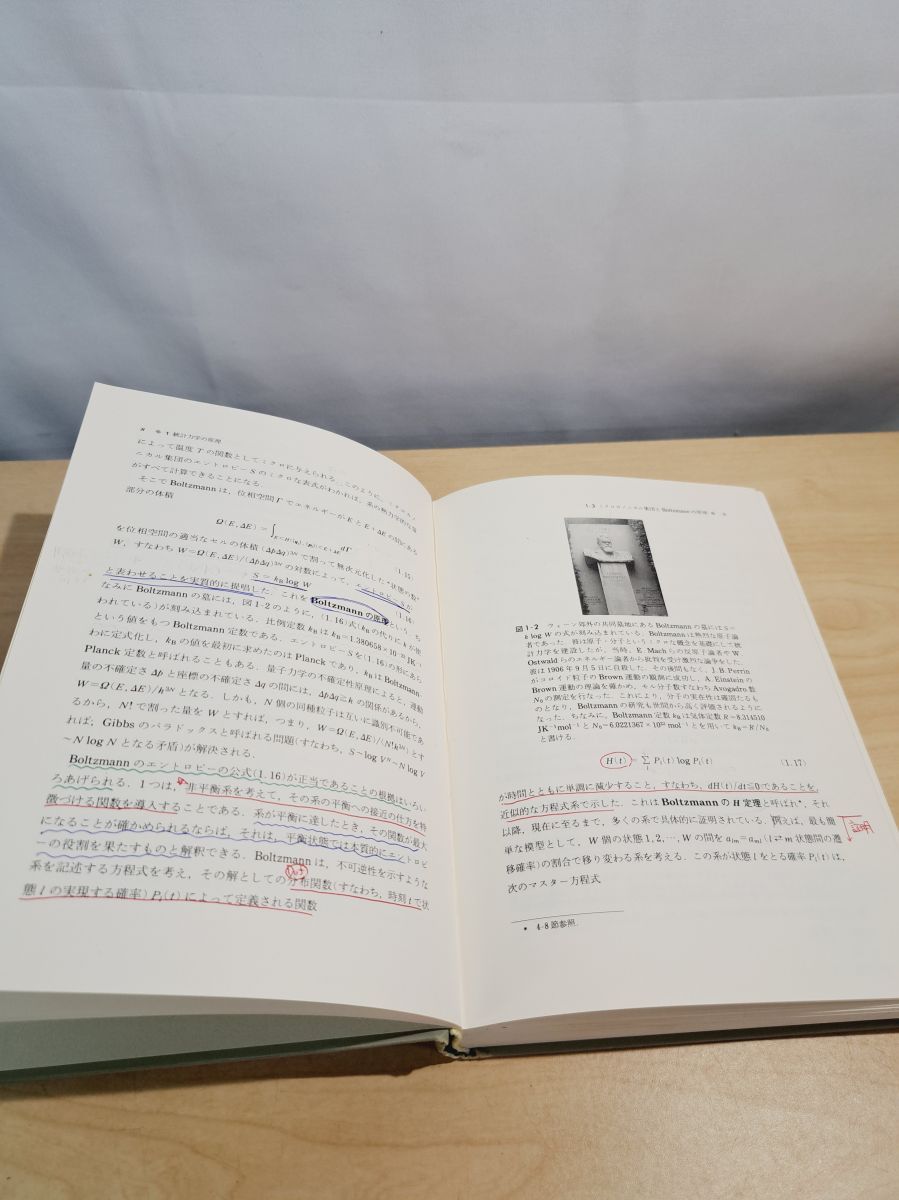 8 1 統計力学の原理
によって温度 T の関数としてミクロに与えられる. このように, ミクロカノ
ニカル集団のエントロピー S のミクロな表式がわかれば, 系の熱力学的な量
がすべて計算できることになる.
そこで Boltzmann は, 位相空間 Γ でエネルギーが E と E+ΔE の間にある
部分の体積
Ω(E, ΔE) = ∫ dΓ (1.15)
を位相空間の適当なセルの体積 (ΔpΔq)³ᴺ で割って無次元化した“状態の数”
W, すなわち W=Ω(E, ΔE)/(ΔpΔq)³ᴺ の対数によって, エントロピー S が
S = k_B log W (1.16)
と表わせることを実質的に提唱した. これを Boltzmann の原理という. ち
なみに Boltzmann の墓には, 図 1-2 のように, (1.16)式(k_B の代りに k が使
われている)が刻み込まれている. 比例定数 k_B は k_B=1.380658×10⁻²³ JK⁻¹
という値をもつ Boltzmann 定数である. エントロピー S を(1.16)の形にあら
わに定式化し, k_B の値を最初に求めたのは Planck であり, k_B は Boltzmann-
Planck 定数と呼ばれることもある. 量子力学の不確定性原理によると, 運動
量の不確定さ Δp と座標の不確定さ Δq の間には, ΔpΔq≃h の関係があるから,
W=Ω(E, ΔE)/h³ᴺ となる. しかも, N 個の同種粒子は互いに識別不可能であ
るから, N! で割った量を W とすれば, つまり, W=Ω(E, ΔE)/(N!h³ᴺ) とす
れば, Gibbs のパラドックスと呼ばれる問題(すなわち, S~log Vᴺ~N log V
~N log N となる矛盾)が解決される.
Boltzmann のエントロピーの公式(1.16)が正当であることの根拠はいろい
ろあげられる. 1つは, 非平衡系を考えて, その系の平衡への接近の仕方を特
徴づける関数を導入することである. 系が平衡に達したとき, その関数が最大
になることが確かめられるならば, それは, 平衡状態では本質的にエントロピ
ーの役割を果たすものと解釈できる. Boltzmann は, 不可逆性を示すような
系を記述する方程式を考え, その解としての分布関数(すなわち, 時刻 t で状
態 l の実現する確率) P_l(t) によって定義される関数
1-3 ミクロカノニカル集団と Boltzmann の原理
図 1-2 ウィーン郊外の共同墓地にある Boltzmann の墓には S=
k log W の式が刻み込まれている. Boltzmann は熱烈な原子論
者であった. 彼は原子・分子というミクロな概念を基礎にして統
計力学を建設したが, 当時, E. Mach らの反原子論者や W.
Ostwald らのエネルギー論者から批判を受け激烈な論争をした.
彼は 1906 年 9 月 5 日に自殺した. その後間もなく, J. B. Perrin
がコロイド粒子の Brown 運動の観測に成功し, A. Einstein の
Brown 運動の理論を確かめ, モル分子数すなわち Avogadro 数
N₀ の測定を行なった. これにより, 分子の実在性は確固たるも
のとなり, Boltzmann の研究も世間から高く評価されるように
なった. ちなみに, Boltzmann 定数 k_B は気体定数 R=8.314510
JK⁻¹mol⁻¹ と N₀=6.0221367×10²³ mol⁻¹ とを用いて k_B=R/N₀
と書ける.
H(t) = Σ P_l(t) log P_l(t) (1.17)
が時間とともに単調に減少すること, すなわち, dH(t)/dt≦0 であることを,
近似的な方程式系で示した. これは Boltzmann の H 定理と呼ばれ*, それ
以降, 現在に至るまで, 多くの系で具体的に証明されている. 例えば, 最も簡
単な模型として, W 個の状態 1, 2, …, W の間を a_lm=a_ml (l⇄m 状態間の遷
移確率)の割合で移り変わる系を考える. この系が状態 l をとる確率 P_l(t) は,
次のマスター方程式
証明
* 4-8 節参照.